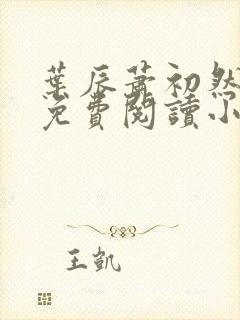 葉辰蕭初然
免費閱讀小
王凱